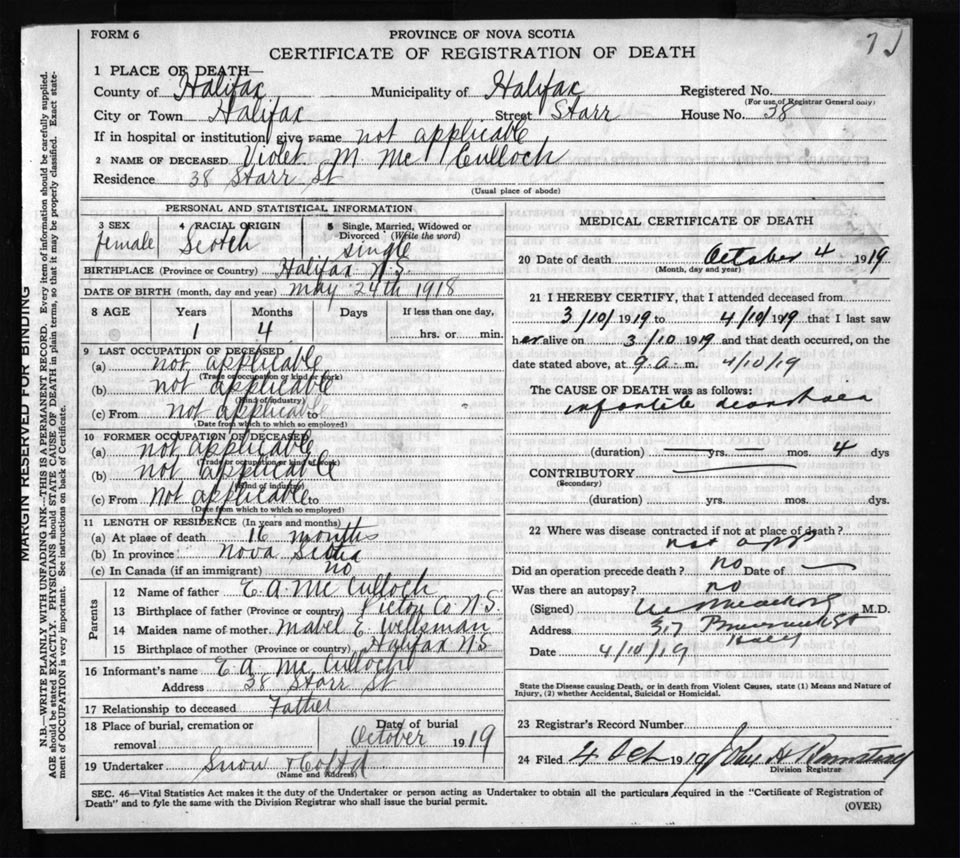 FORM 6
PROVINCE OF NOVA SCOTIA
CERTIFICATE OF REGISTRATION OF DEATH
1 PLACE OF DEATH—
County of Halifax Municipality of Halifax Registered No.
(For use of Registrar General only)
City or Town Halifax Street Starr House No. 38
If in hospital or institution, give name not applicable
2 NAME OF DECEASED Violet M Mc Culloch
Residence 38 Starr St
(Usual place of abode)
PERSONAL AND STATISTICAL INFORMATION
3 SEX female 4 RACIAL ORIGIN Scotch 5 Single, Married, Widowed or Divorced (Write the word) single
BIRTHPLACE (Province or Country) Halifax N.S.
DATE OF BIRTH (month, day and year) May 24th 1918
8 AGE Years Months Days If less than one day,
1 4 hrs. or min.
9 LAST OCCUPATION OF DECEASED
(a) not applicable
(Trade or occupation or kind of work)
(b) not applicable
(Kind of industry)
(c) From not applicable to
(Date from which to which so employed)
10 FORMER OCCUPATION OF DECEASED
(a) not applicable
(Trade or occupation or kind of work)
(b) not applicable
(Kind of industry)
(c) From not applicable to
(Date from which to which so employed)
11 LENGTH OF RESIDENCE (In years and months)
(a) At place of death 16 months
(b) In province Nova Scotia
(c) In Canada (if an immigrant) no
Parents
12 Name of father E. A. Mc Culloch
13 Birthplace of father (Province or country) Pictou Co N.S.
14 Maiden name of mother Mabel E. Wellsman
15 Birthplace of mother (Province or country) Halifax N S
16 Informant's name E. A. Mc Culloch
Address 38 Starr St
17 Relationship to deceased Father
18 Place of burial, cremation or removal Date of burial
October 1919
19 Undertaker Snow & Co Ltd
(Name and Address)
MEDICAL CERTIFICATE OF DEATH
20 Date of death October 4 1919
(Month, day and year)
21 I HEREBY CERTIFY, that I attended deceased from
3/10/1919 to 4/10/1919 that I last saw
her alive on 3/10 1919 and that death occurred, on the
date stated above, at 9 a. m. 4/10/19
The CAUSE OF DEATH was as follows:
infantile
(duration) — yrs. — mos. 4 dys
CONTRIBUTORY
(Secondary)
(duration) yrs. mos. dys.
22 Where was disease contracted if not at place of death?
not app
Did an operation precede death? no Date of
Was there an autopsy? no
(Signed) M.D.
Address
Date 4/10/19
State the Disease causing Death, or in death from Violent Causes, state (1) Means and Nature of Injury, (2) whether Accidental, Suicidal or Homicidal.
23 Registrar's Record Number
24 Filed 4 Oct 1919 John A
Division Registrar
SEC. 46—Vital Statistics Act makes it the duty of the Undertaker or person acting as Undertaker to obtain all the particulars required in the "Certificate of Registration of
Death" and to fyle the same with the Division Registrar who shall issue the burial permit.
(OVER)
MARGIN RESERVED FOR BINDING
N.B.—WRITE PLAINLY WITH UNFADING INK—THIS IS A PERMANENT RECORD. Every item of information should be carefully supplied.
AGE should be stated EXACTLY. PHYSICIANS should STATE CAUSE OF DEATH in plain terms, so that it may be properly classified. Exact state-
ment of OCCUPATION is very important. See instructions on back of Certificate.